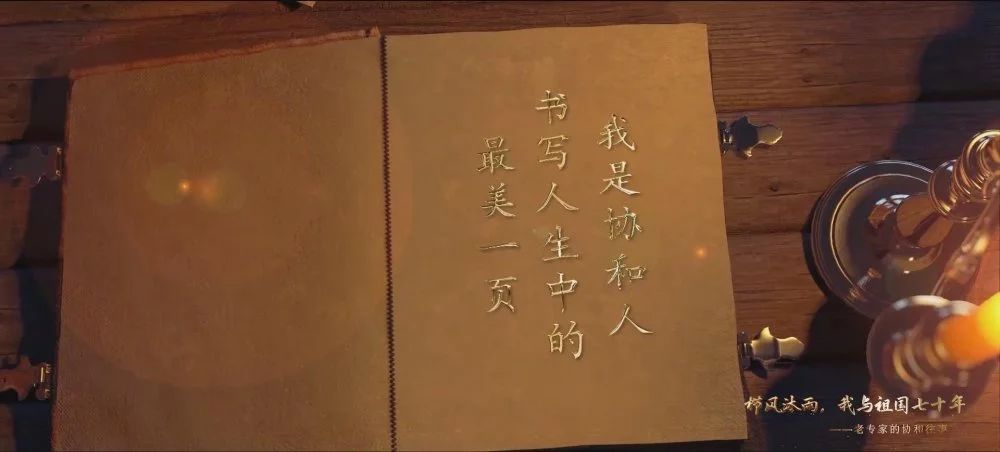 我是协和人
书写人生中的
最美一页
栉风沐雨，我与祖国七十年
——老专家的协和往事